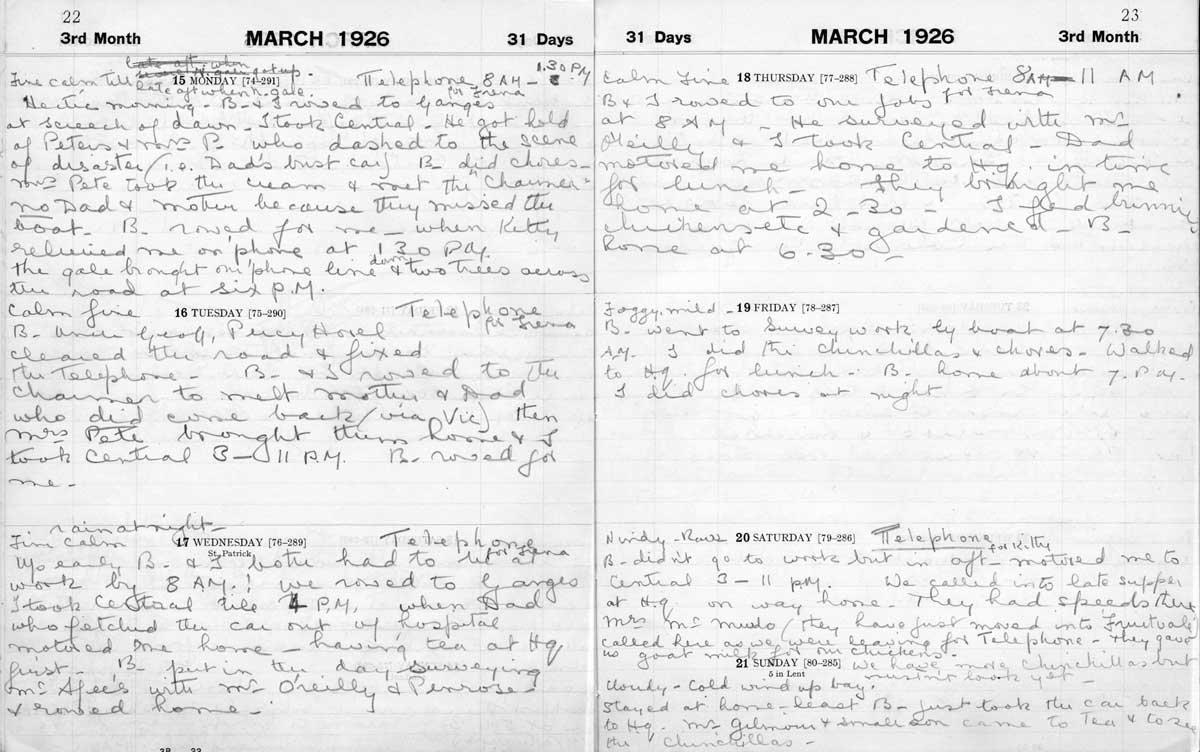 22
3rd Month MARCH 1926 31 Days
late aft. when
15 MONDAY [74-291]
Fine calm till late aft when n. gale. Telephone 8 AM - 1.30 P.M
for Irena
Hectic morning - B & I rowed to Ganges
at screech of dawn. I took Central - He got hold
of Peters & Mrs P. who dashed to the scene
of disaster (i.e. Dad's bust car) B. did chores -
Mrs Pete took the cream & met the "Charmer"
no Dad & mother because they missed the
boat. B. rowed for me - when Kitty
relieved me on phone at 1.30 P.M.
the gale brought our 'phone line down & two trees across
the road at six P.M.
Calm fine 16 TUESDAY [75-290] Telephone
for Irena
B. Geoff, Percy Horel
cleared the road & fixed
the Telephone - B. & I rowed to the
Charmer to meet mother & Dad
who did come back (via Vic) then
Mrs Pete brought them home & I
took Central 3 - 11 P.M. B. rowed for
me -
rain at night -
Fine calm 17 WEDNESDAY [76-289] Telephone
St. Patrick for Irena
Up early B. & I both had to be at
work by 8 AM.! We rowed to Ganges
I took Central till 4 P.M. when Dad
who fetched the car out of hospital
motored me home - having tea at Hq
first - B. put in the day surveying
Mc Afee's with Mr O'Reilly & Penrose -
& rowed home -
23
31 Days MARCH 1926 3rd Month
Calm Fine 18 THURSDAY [77-288] Telephone 8 AM - 11 AM
for Irena
B & I rowed to our jobs
at 8 AM - He surveyed with Mr
O'Reilly & I took Central - Dad
motored me home to Hq in time
for lunch - They brought me
home at 2-30 - I fed bunnies
chickens etc & gardened - B -
home at 6.30 -
Foggy, mild - 19 FRIDAY [78-287]
B. went to Survey work by boat at 7.30
AM. I did the chinchillas & chores - Walked
to Hq. for lunch - B. home about 7. P.M.
I did chores at night
Windy - Raw 20 SATURDAY [79-286] Telephone
for Kitty
B - didn't go to work but in aft - motored me to
Central 3 - 11 P.M. We called into late supper
at Hq. on way home. They had speeds there
Mrs (they have just moved into Fruitvale)
called here as we were leaving for Telephone - they gave
us goat milk for our chickens.
21 SUNDAY [80-285] We have more chinchillas but
5 in Lent mustn't look yet -
Cloudy - Cold wind up bay.
Stayed at home - least B - just took the car back
to Hq. Mrs Gilmour & small son came to Tea & to see
the chinchillas -